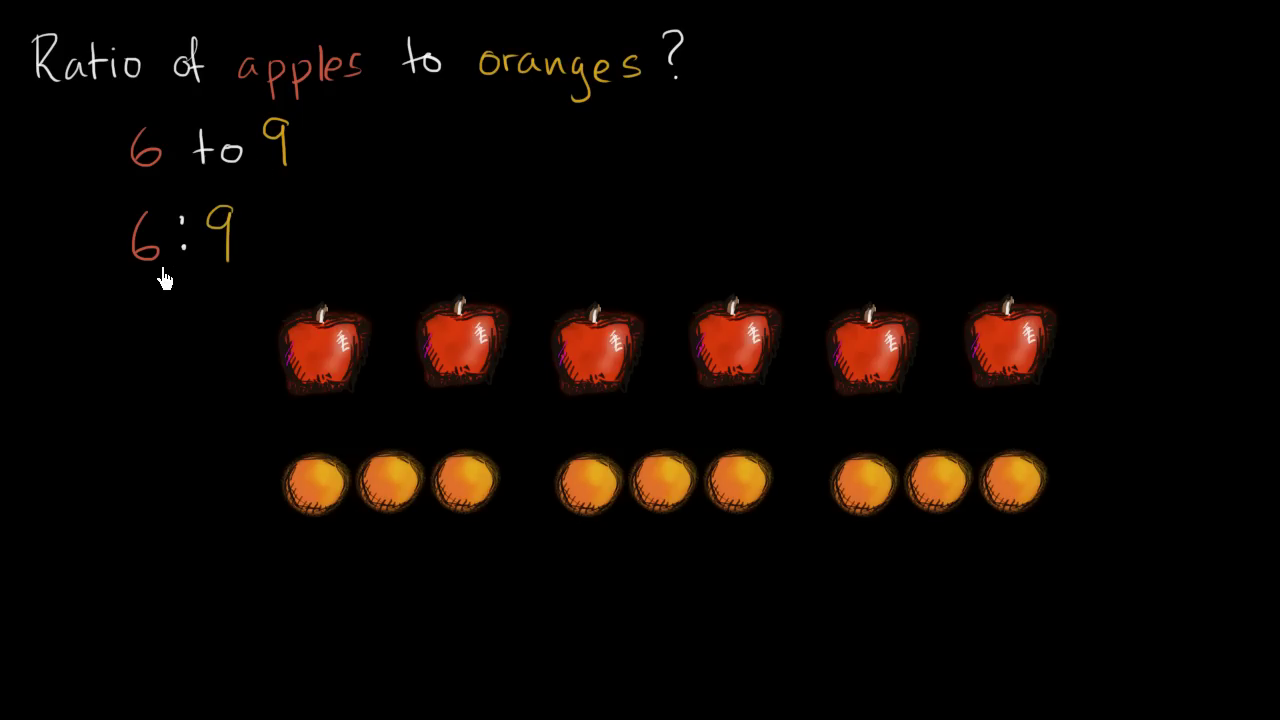 Ratio of apples to oranges?
6 to 9
6:9